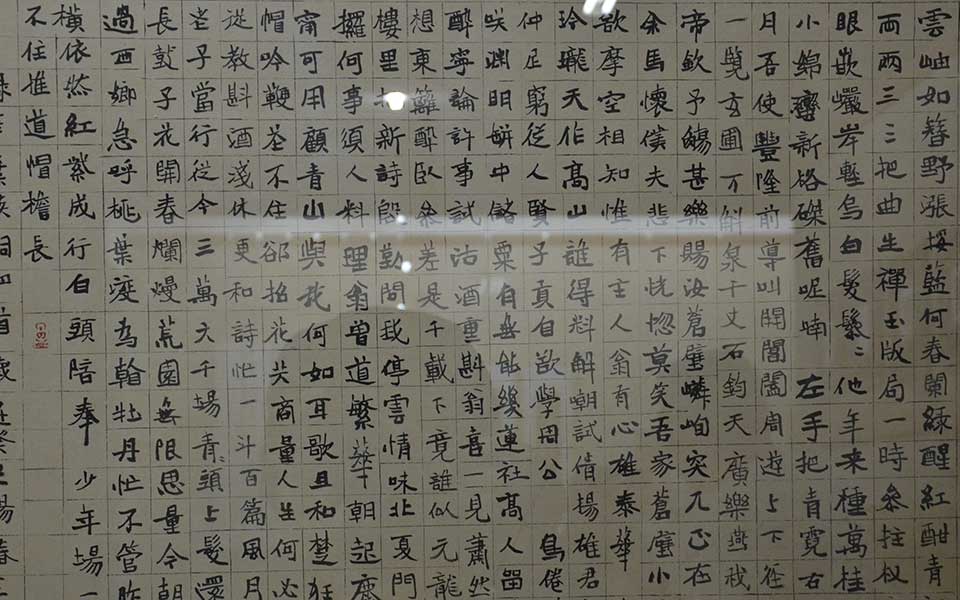 雲岫如簪野漲挼藍何春闌綠醒紅酣青
兩兩三三把曲生禪玉版局一時參拄杖
眼嵌巖岸輕烏白髮鬖鬖他年來種萬桂
小綿蠻新格磔舊呢喃 左手把青霓右
月吾使豐隆前導叫開閶闔周遊上下徑
一覽玄圃万斛泉千丈石鈞天廣樂燕我
帝飲予觴甚樂賜汝蒼璧嶙峋突兀正在
余馬懷僕夫悲下恍惚莫笑吾家蒼壁小
欲摩空相知惟有主人翁有心雄泰華
玲瓏天作高山誰得料解嘲試倩揚雄君
仲足窮從人賢子貢自欲學周公 鳥倦
咲淵明缾中儲粟有無能幾蓮社高人留
醉寧論許事試沽酒重斟翁喜一見蕭然
想東籬醉臥參差是千載下竟誰似元龍
樓里新詩慇勤問我停雲情味北夏門
攞何事須人料理翁曾道繁華朝起鹿
甯可用顧青山與我何如耳歌且和楚狂
帽吟鞭不住卻招花共商量人生何必
從教斟酒淺休更和詩忙一斗百篇風月
老子當行從今三萬六千場青頭上髮還
長鼓子花開春爛熳荒園無限思量今朝
過西鄉急呼桃葉渡為牡丹忙不管昨
橫依然紅紫成行白頭陪奉少年場一
不住推道帽檐長